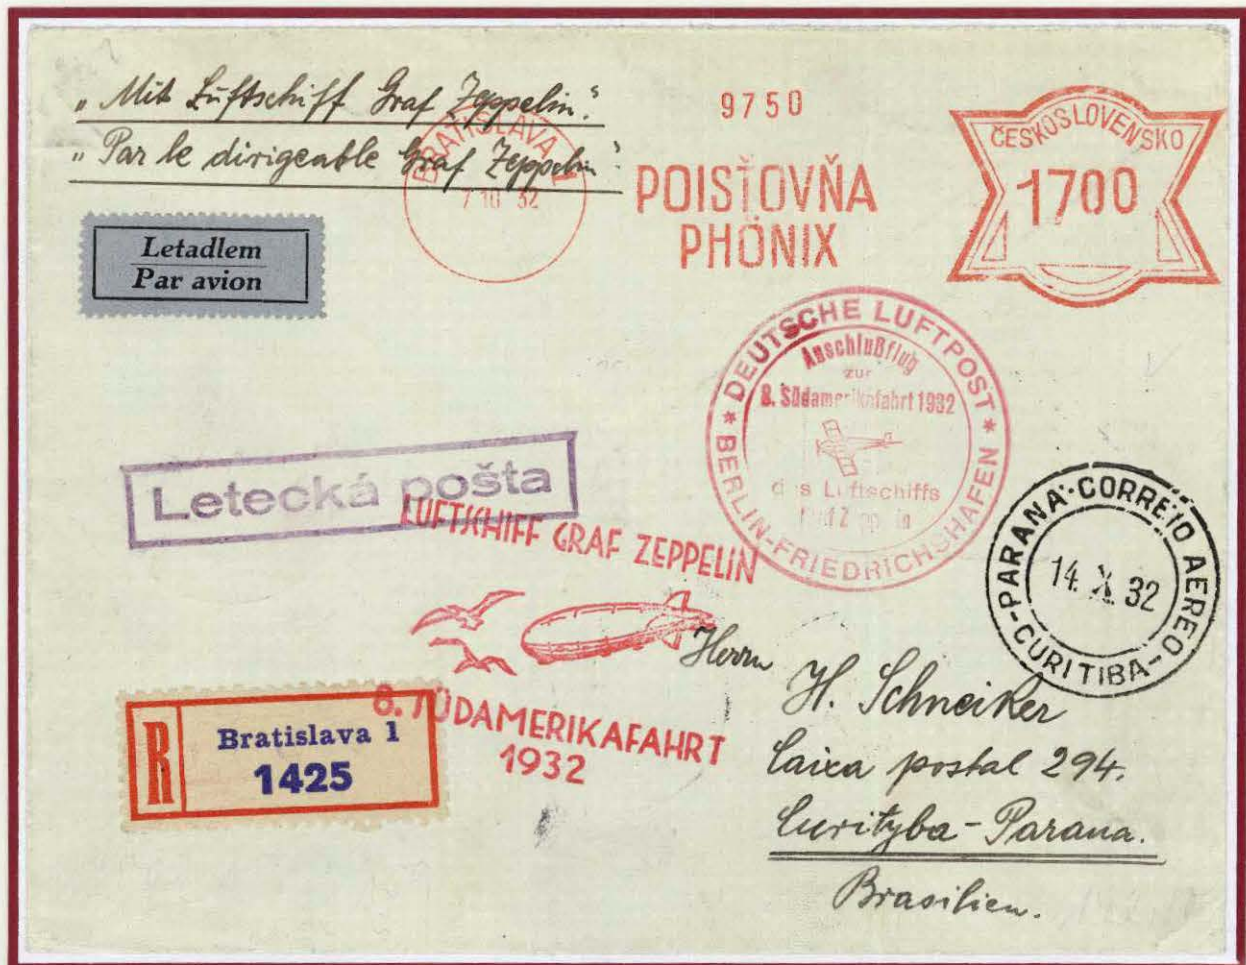 „Mit Luftschiff Graf Zeppelin“
„Par le dirigeable Graf Zeppelin“
BRATISLAVA 1
7 10 32
9750
POISŤOVŇA
PHÖNIX
ČESKOSLOVENSKO
1700
Letadlem
Par avion
* DEUTSCHE LUFTPOST *
Anschlußflug
zur
8. Südamerikafahrt 1932
des Luftschiffs
BERLIN-FRIEDRICHSHAFEN
Letecká pošta
LUFTSCHIFF GRAF ZEPPELIN
8. SÜDAMERIKAFAHRT
1932
-PARANA-CORREIO AEREO
14. X. 32
-CURITIBA-
R
Bratislava 1
1425
Herrn
H. Schneiker
Caixa postal 294.
Curityba-Parana.
Brasilien.